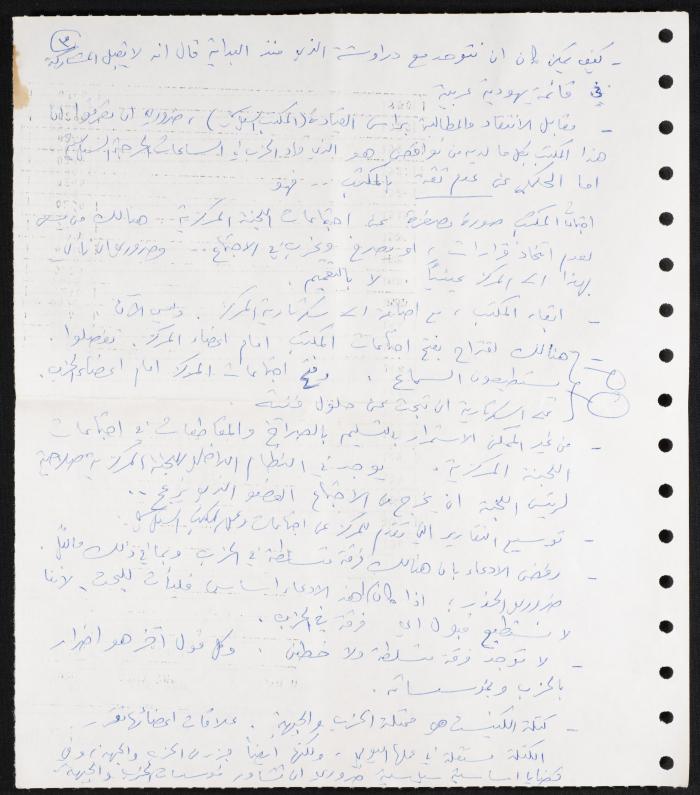 ٣
- كيف يمكن كان ان نتوحد مع دراوشة الذي منذ البداية قال انه لا يقبل المشاركة
في قائمة يهودية عربية
- مقابل الانتقاد والمطالبة القيادة (المكتب السياسي) ، ضروري ان
هذا المكتب بكل ما لديه من نواقص هو الذي قاد الحزب في الساعات الحرجة
اما الحكي عن عدم ثقة بالمكتب .. فهو
اجتماعات المكتب صورة مصغرة عن اجتماعات اللجنة المركزية .. هنالك من
لعدم اتخاذ قرارات ، او يصرخ ويخرب في الاجتماع .. وضروري ان
بهذا الى المركز عينياً . لا بالتعميم .
- ابقاء المكتب ، مع اضافة الى سكرتارية المركز . وليس الآن
- هنالك اقتراح بفتح اجتماعات المكتب امام اعضاء المركز . تفضلوا .
يستطيعون السماع . وفتح اجتماعات المركز امام اعضاء الحزب .
على السكرتارية ان تبحث عن حلول فنية .
- من غير الممكن الاستمرار بالتسليم بالصراخ والمقاطعات في اجتماعات
اللجنة المركزية . يوجد في النظام الداخلي للجنة المركزية صلاحية
لرئيس اللجنة ان يخرج من الاجتماع العضو الذي يزعج ..
- توسيع التقارير التي تقدم للمركز عن اجتماعات وعمل المكتب السياسي
- رفض الادعاء بان هنالك فرقة متسلطة في الحزب وبما في ذلك
ضروري الحذر ؛ اذا كان لهذا الادعاء اساس فليأت للبحث لاننا
لا نستطيع قبول اي فرقة في الحزب .
- لا توجد فرقة متسلطة ولا خطين . وكل قول آخر هو اضرار
بالحزب وبمؤسساته .
- كتلة الكنيست هي ممثلة الحزب والجبهة . علاقات اعضائها تقرر
الكتلة مستقلة في عملها اليومي ، ولكنها ايضاً جزء من الحزب والجبهة ، وفي
قضايا اساسية سياسية ضروري ان تشاور مؤسسات الحزب والجبهة